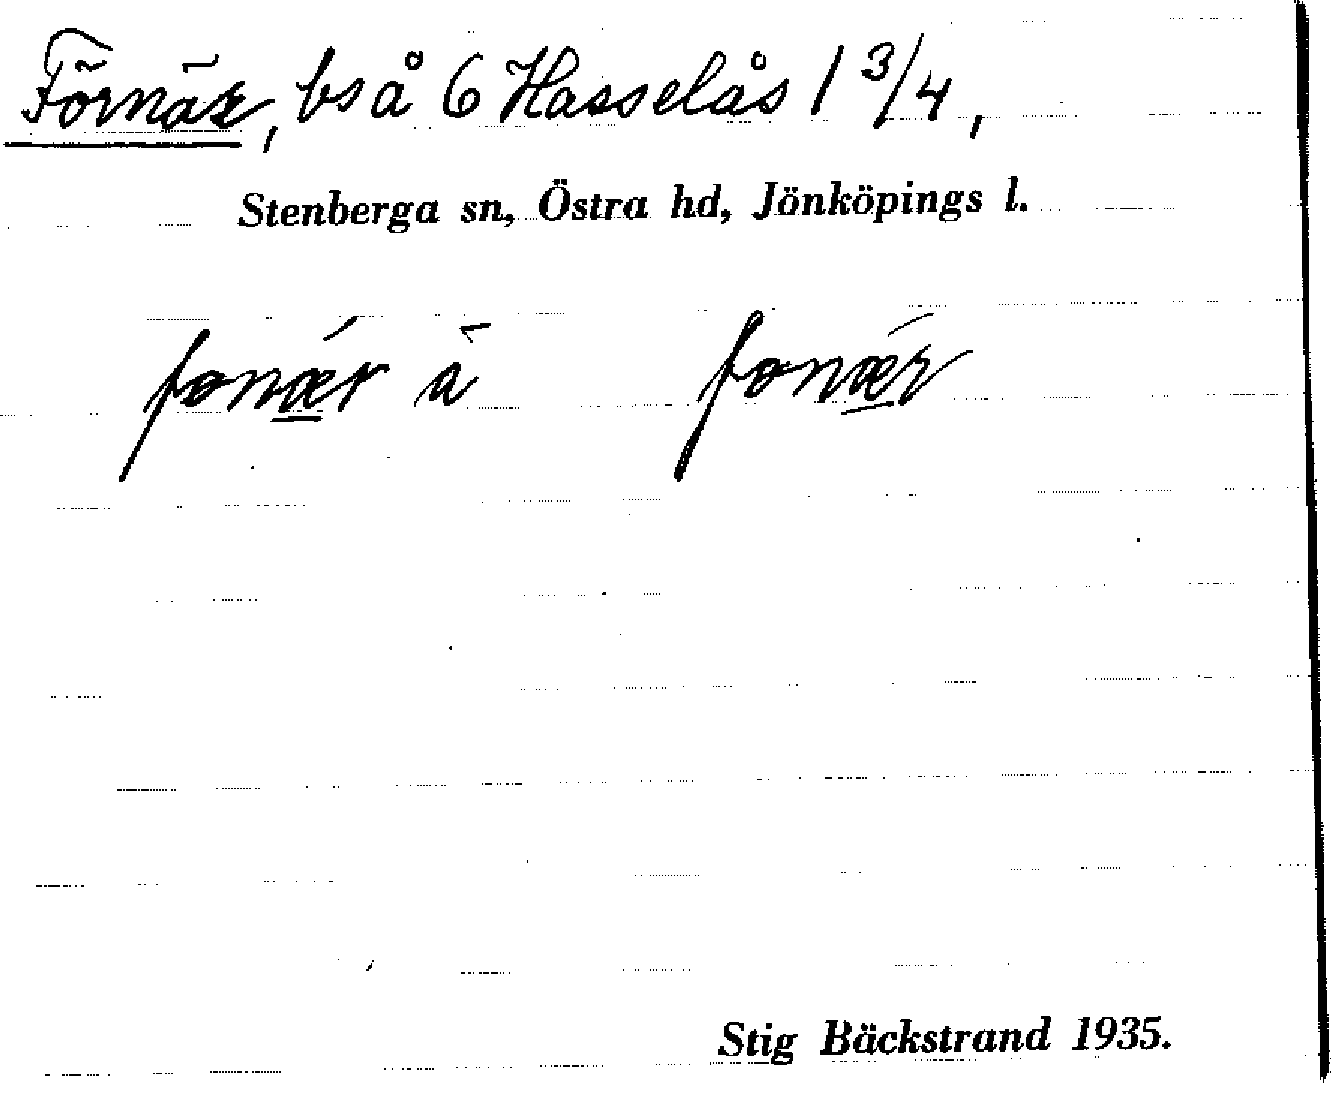 Förnäs, bs å 6 Hasselås 1 3/4,
Stenberga sn, Östra hd, Jönköpings l.
à
Stig Bäckstrand 1935.